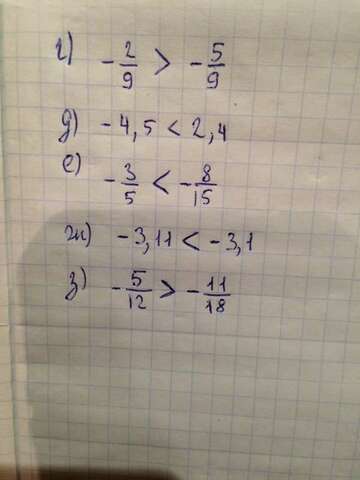 г) -2/9 > -5/9
д) -4,5 < 2,4
е) -3/5 < -8/15
ж) -3,11 < -3,1
з) -5/12 > -11/18